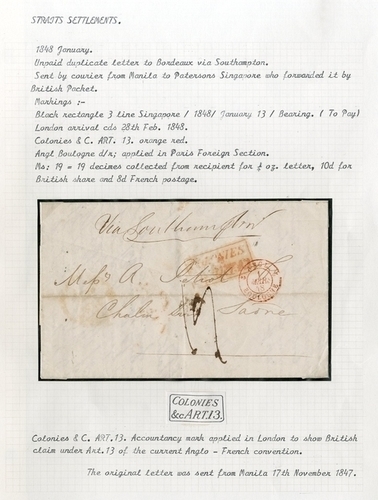 STRAITS SETTLEMENTS.
1848 January.
Unpaid duplicate letter to Bordeaux via Southampton.
Sent by courier from Manila to Patersons Singapore who forwarded it by
British Packet.
Markings :-
Black rectangle 3 line Singapore / 1848/ January 13 / Bearing. ( To Pay)
London arrival cds 28th Feb. 1848.
Colonies & C. ART. 13. orange red.
Angl Boulogne d/r; applied in Paris Foreign Section.
Ms: 19 = 19 decimes collected from recipient for ¼ oz. letter, 10d for
British share and 8d French postage.
Via Southampton
COLONIES
Messrs A.
Chalon Sur Saone
COLONIES
&c ART.13.
Colonies & C. ART.13. Accountancy mark applied in London to show British
claim under Art.13 of the current Anglo - French convention.
The original letter was sent from Manila 17th November 1847.